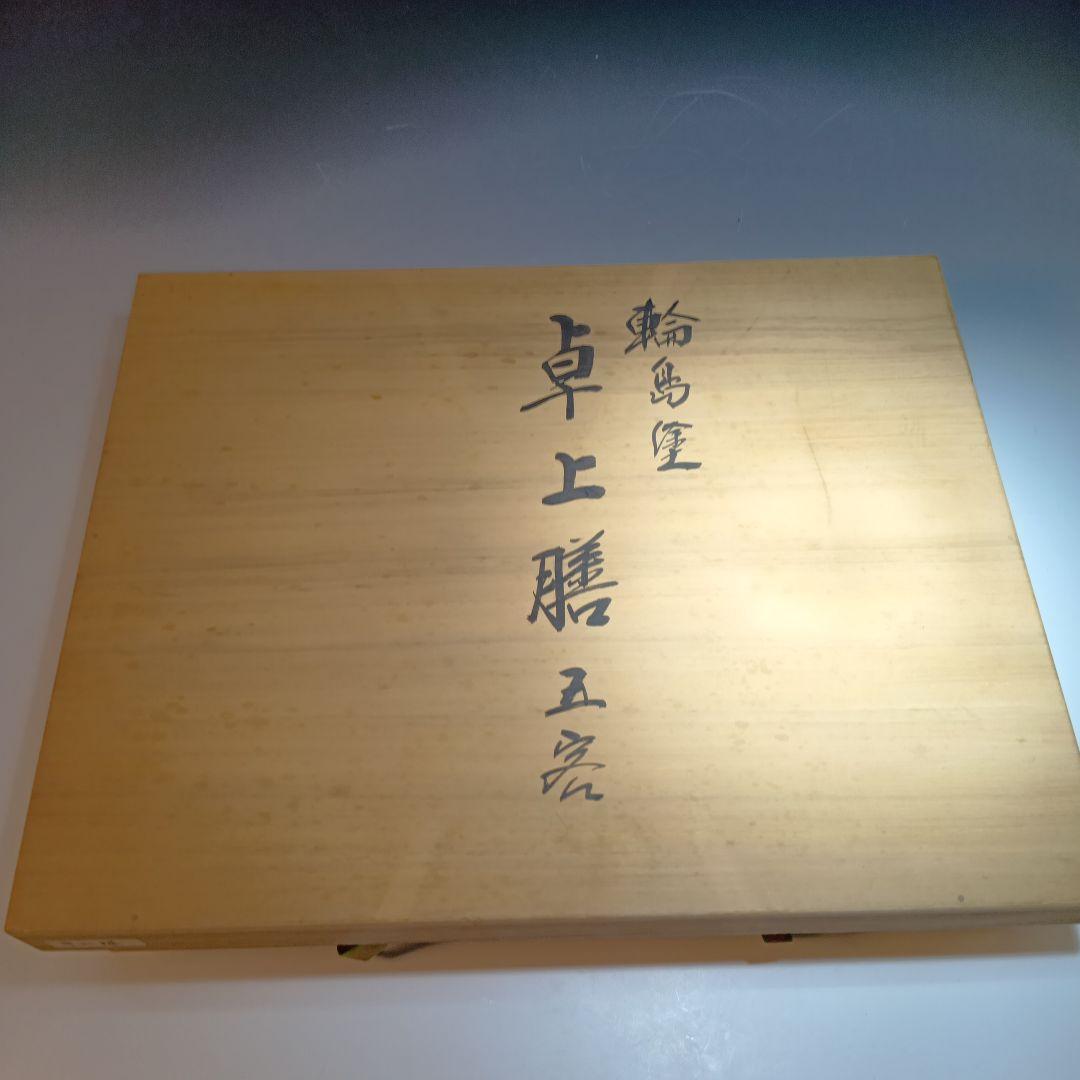 輪島塗
卓上膳五客